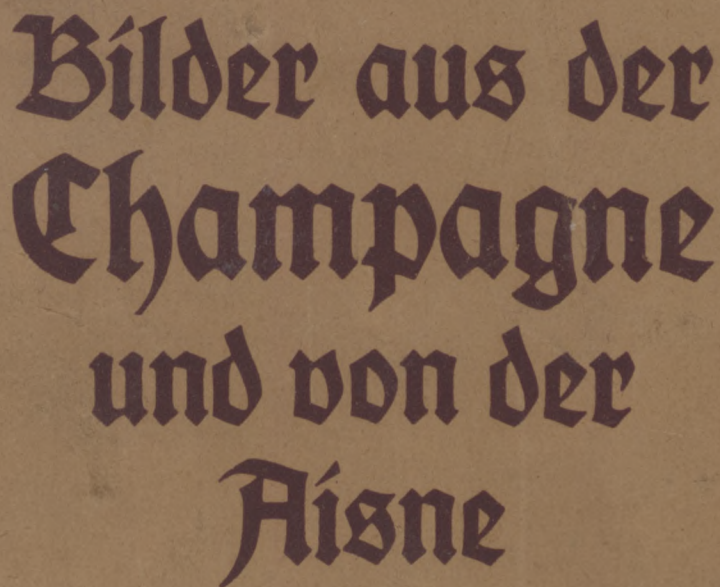 Bilder aus der
Champagne
und von der
Aisne